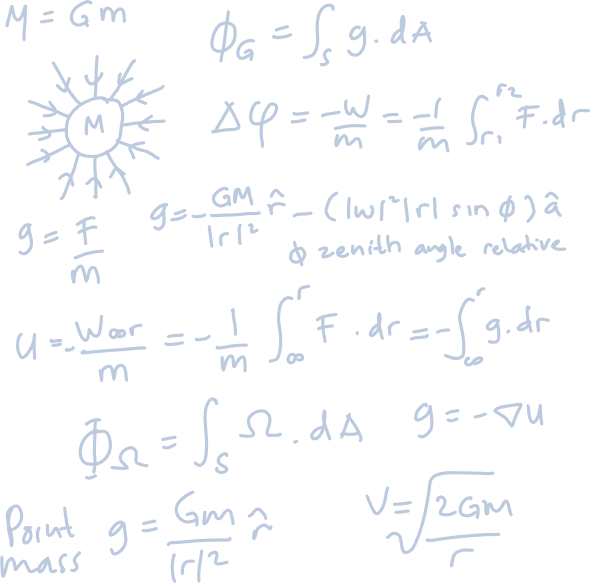 M = Gm
ϕ_G = ∫_S g . dA
M
Δφ = -W/m = -1/m ∫_{r₁}^{r₂} F . dr
g = F/m
g = - GM/|r|² r̂ - (|w|²|r| sin ϕ) â
ϕ zenith angle relative
U = - W∞r/m = - 1/m ∫_∞^r F . dr = - ∫_∞^r g . dr
Φ_Ω = ∫_S Ω . dA
g = -∇U
Point mass g = Gm/|r|² r̂
V = √(2Gm/r)